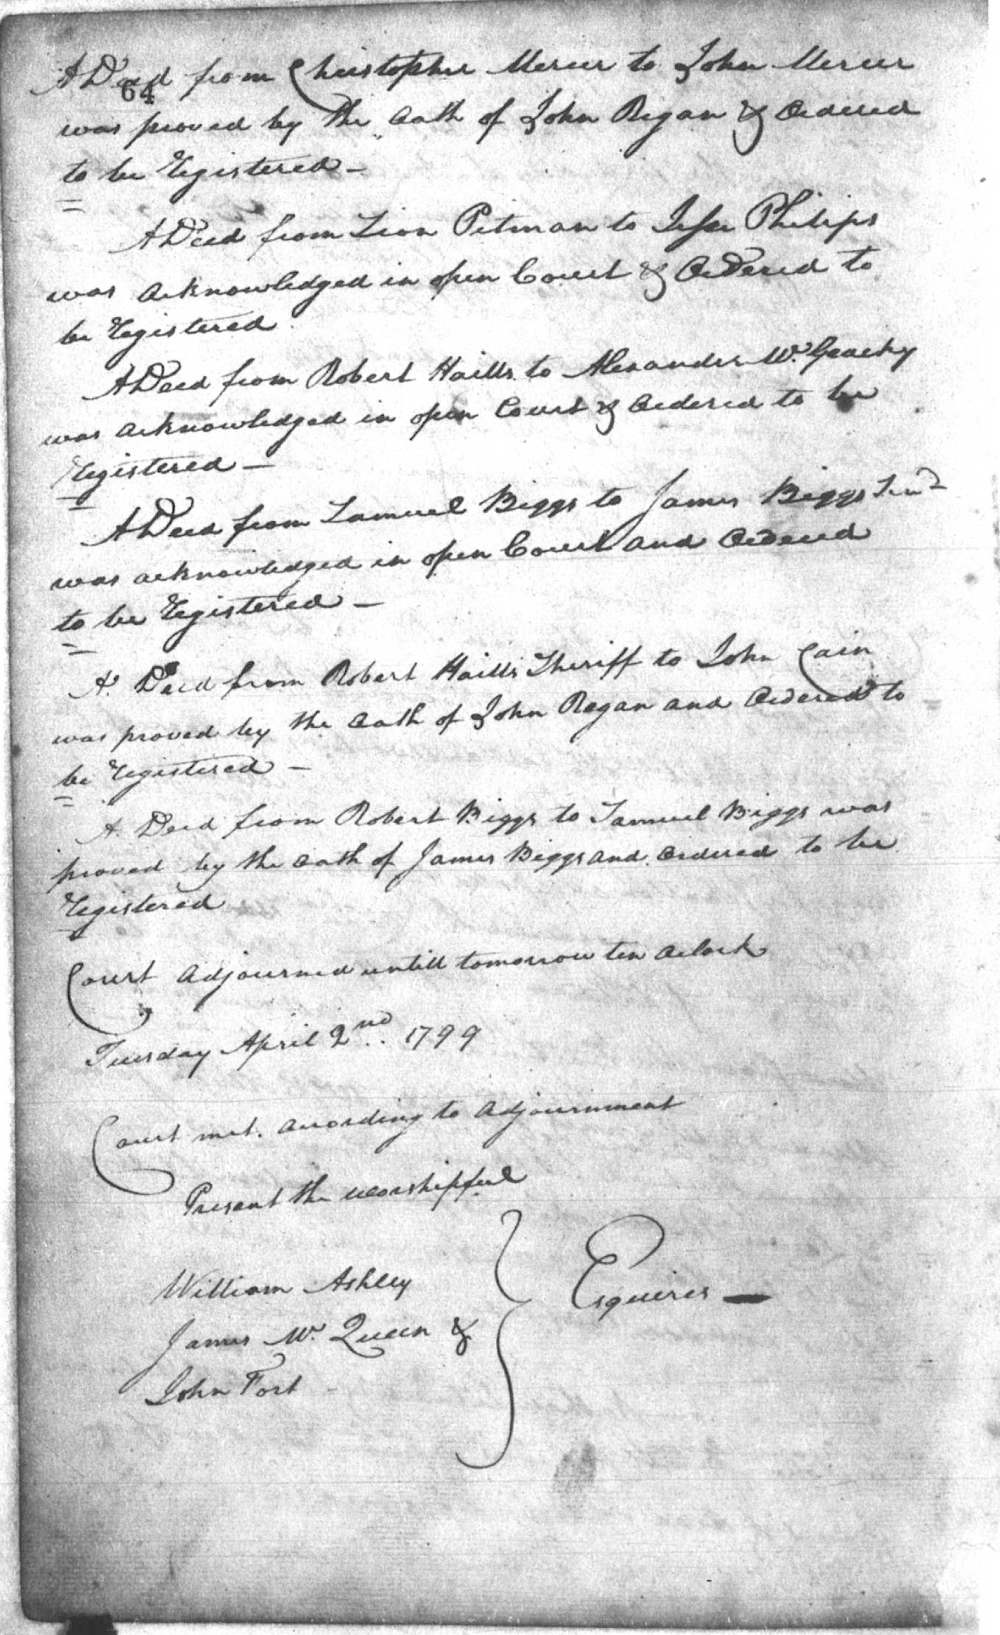 64
A Deed from Christopher Mercer to John Mercer
was proved by the Oath of John Regan & Ordered
to be Registered –
A Deed from Lion Pitman to Jesse Philips
was acknowledged in open Court & Ordered to
be Registered
A Deed from Robert Haills to Alexander Mc Geachy
was acknowledged in open Court & Ordered to be
Registered –
A Deed from Samuel Biggs to James Biggs
was acknowledged in open Court and Ordered
to be Registered –
A Deed from Robert Haills Sheriff to John Cain
was proved by the Oath of John Regan and Ordered to
be Registered –
A Deed from Robert Biggs to Samuel Biggs was
proved by the Oath of James Biggs and Ordered to be
Registered
Court Adjourned untill tomorrow ten Oclock
Tuesday April 2nd. 1799
Court met. according to Adjournment
Present the worshipful
William Ashley
James Mc Queen &
John Fort
} Esquires –